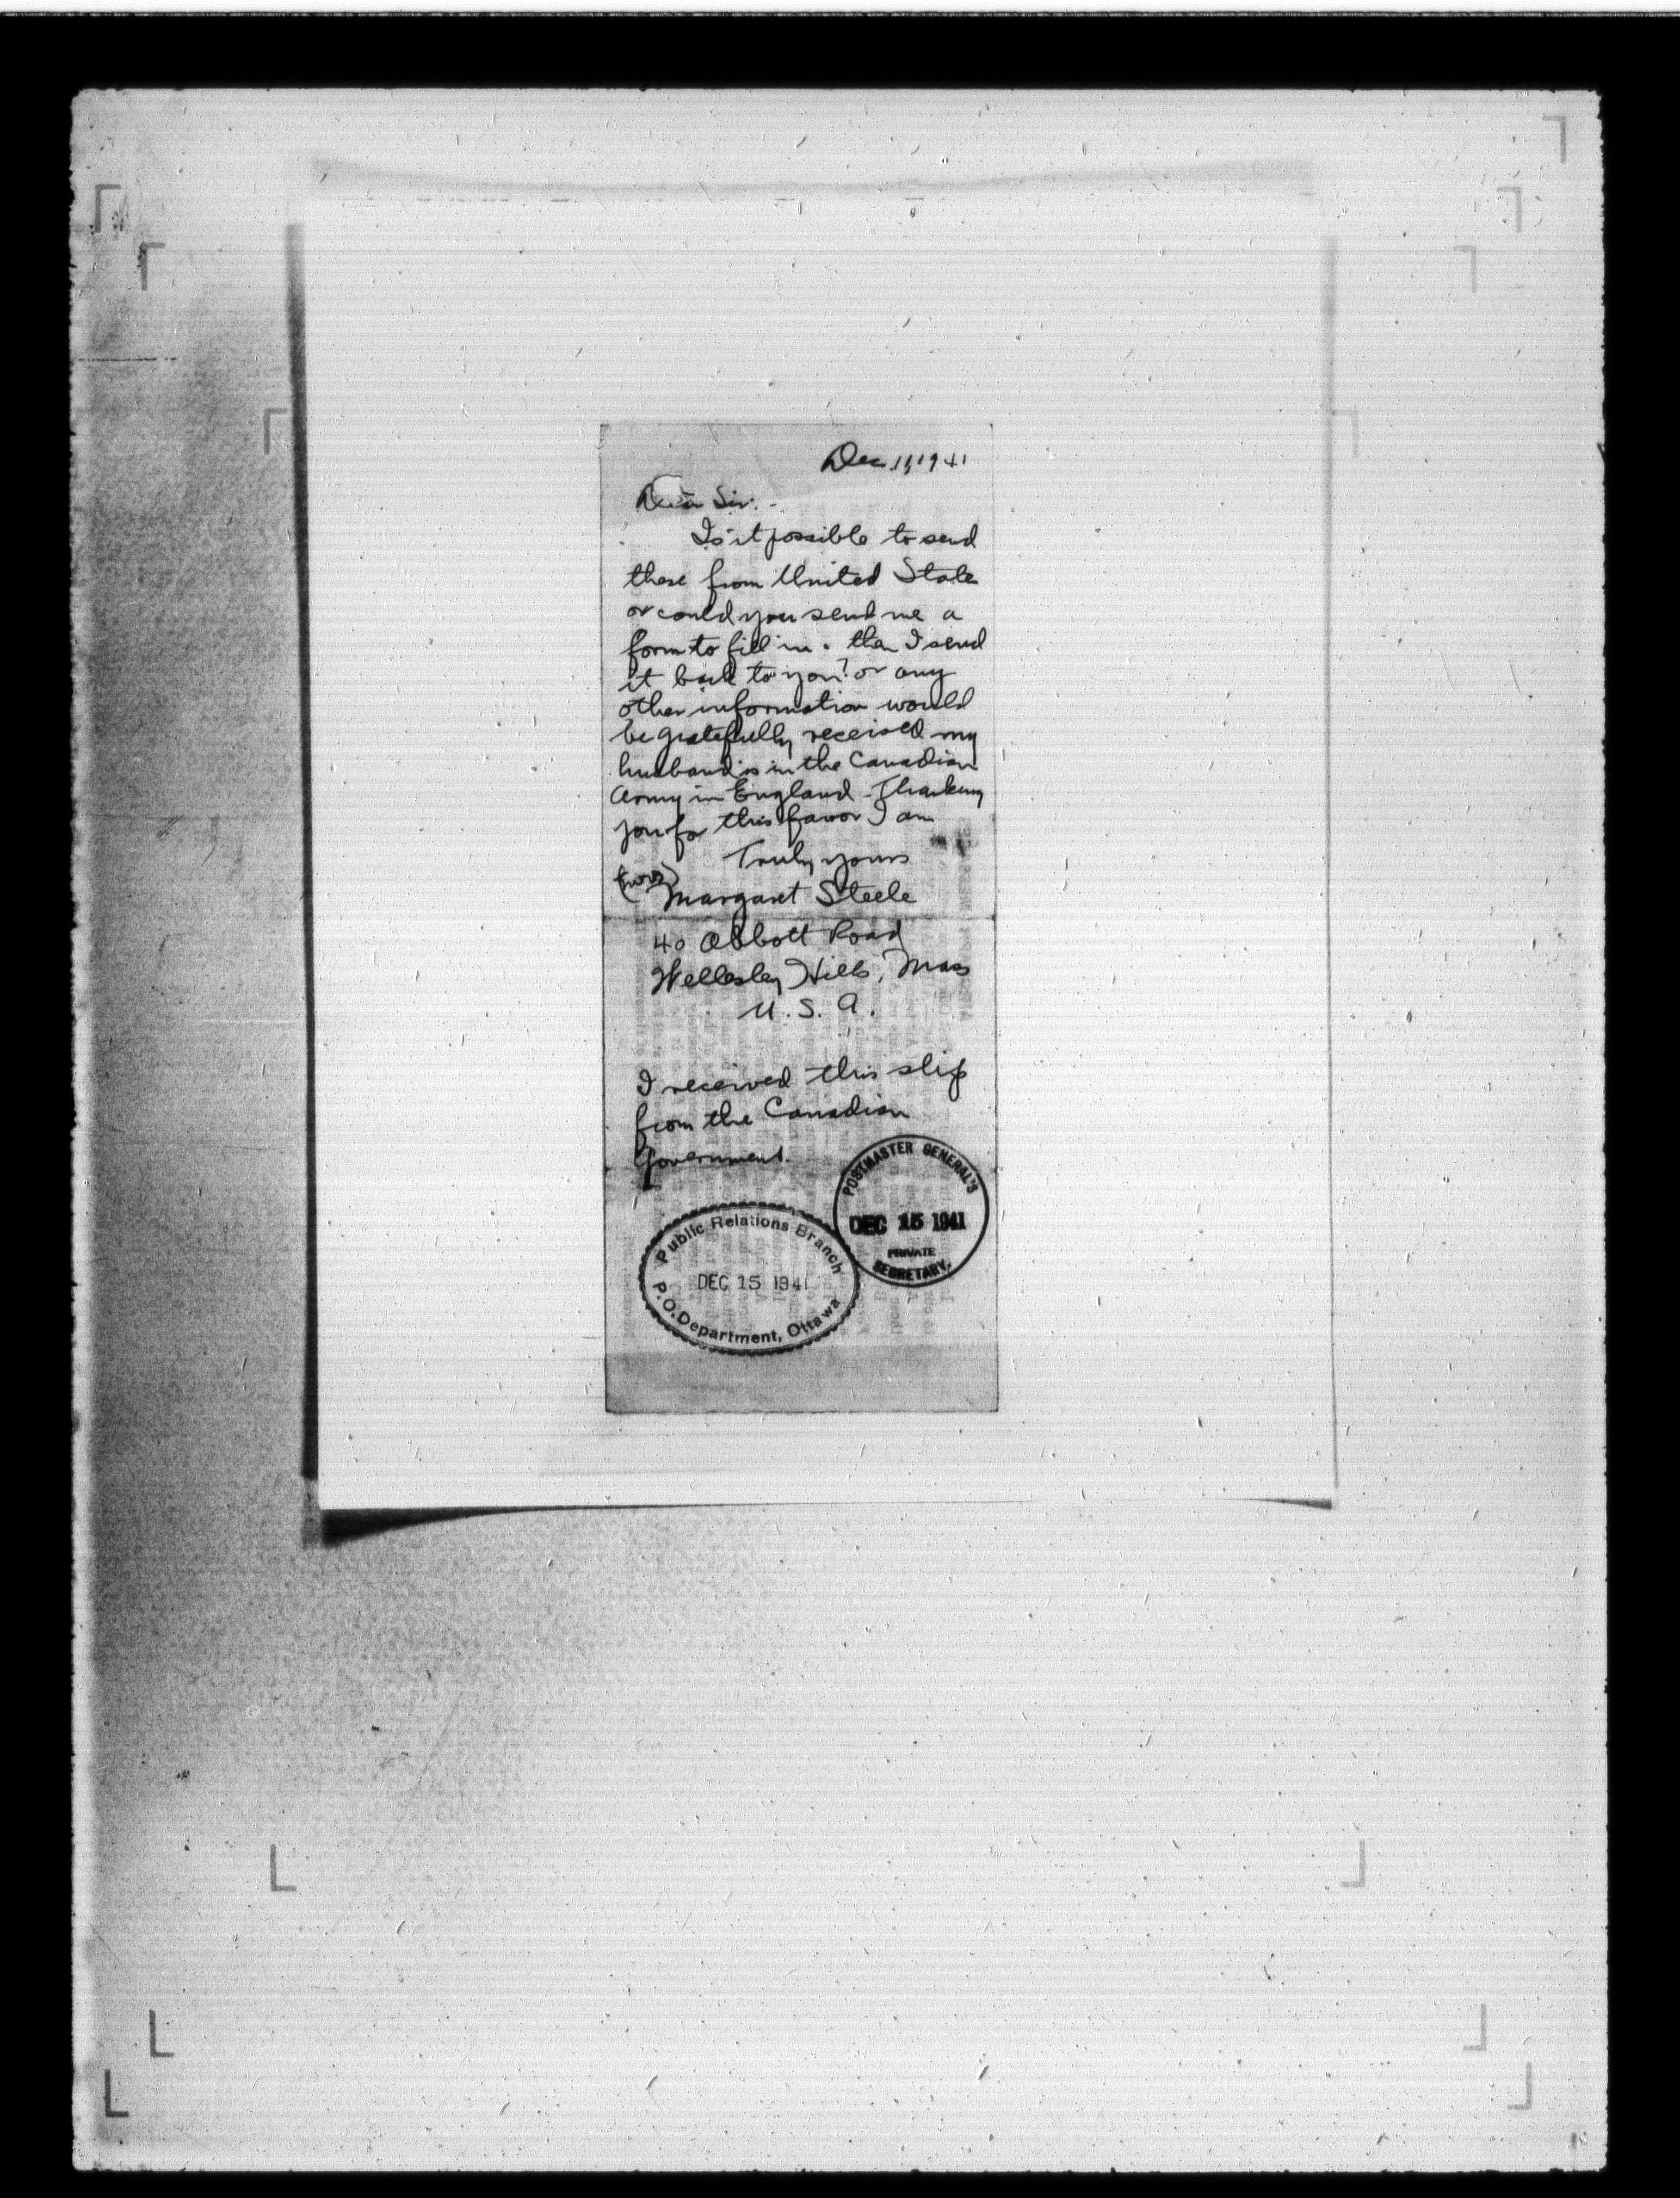 Dec. 11, 1941
Dear Sir: -
Is it possible to send
these from United State
or could you send me a
form to fill in. then I send
it back to you? or any
other information would
be gratefully received my
husband is in the Canadian
Army in England. Thanking
you for this favor I am
Truly yours
(Mrs) Margaret Steele
40 Abbott Road
Wellesley Hills, Mass
U. S. A.
I received this slip
from the Canadian
Government.
POSTMASTER GENERAL'S
DEC 15 1941
PRIVATE
SECRETARY.
Public Relations Branch
DEC 15 1941
P.O. Department, Ottawa